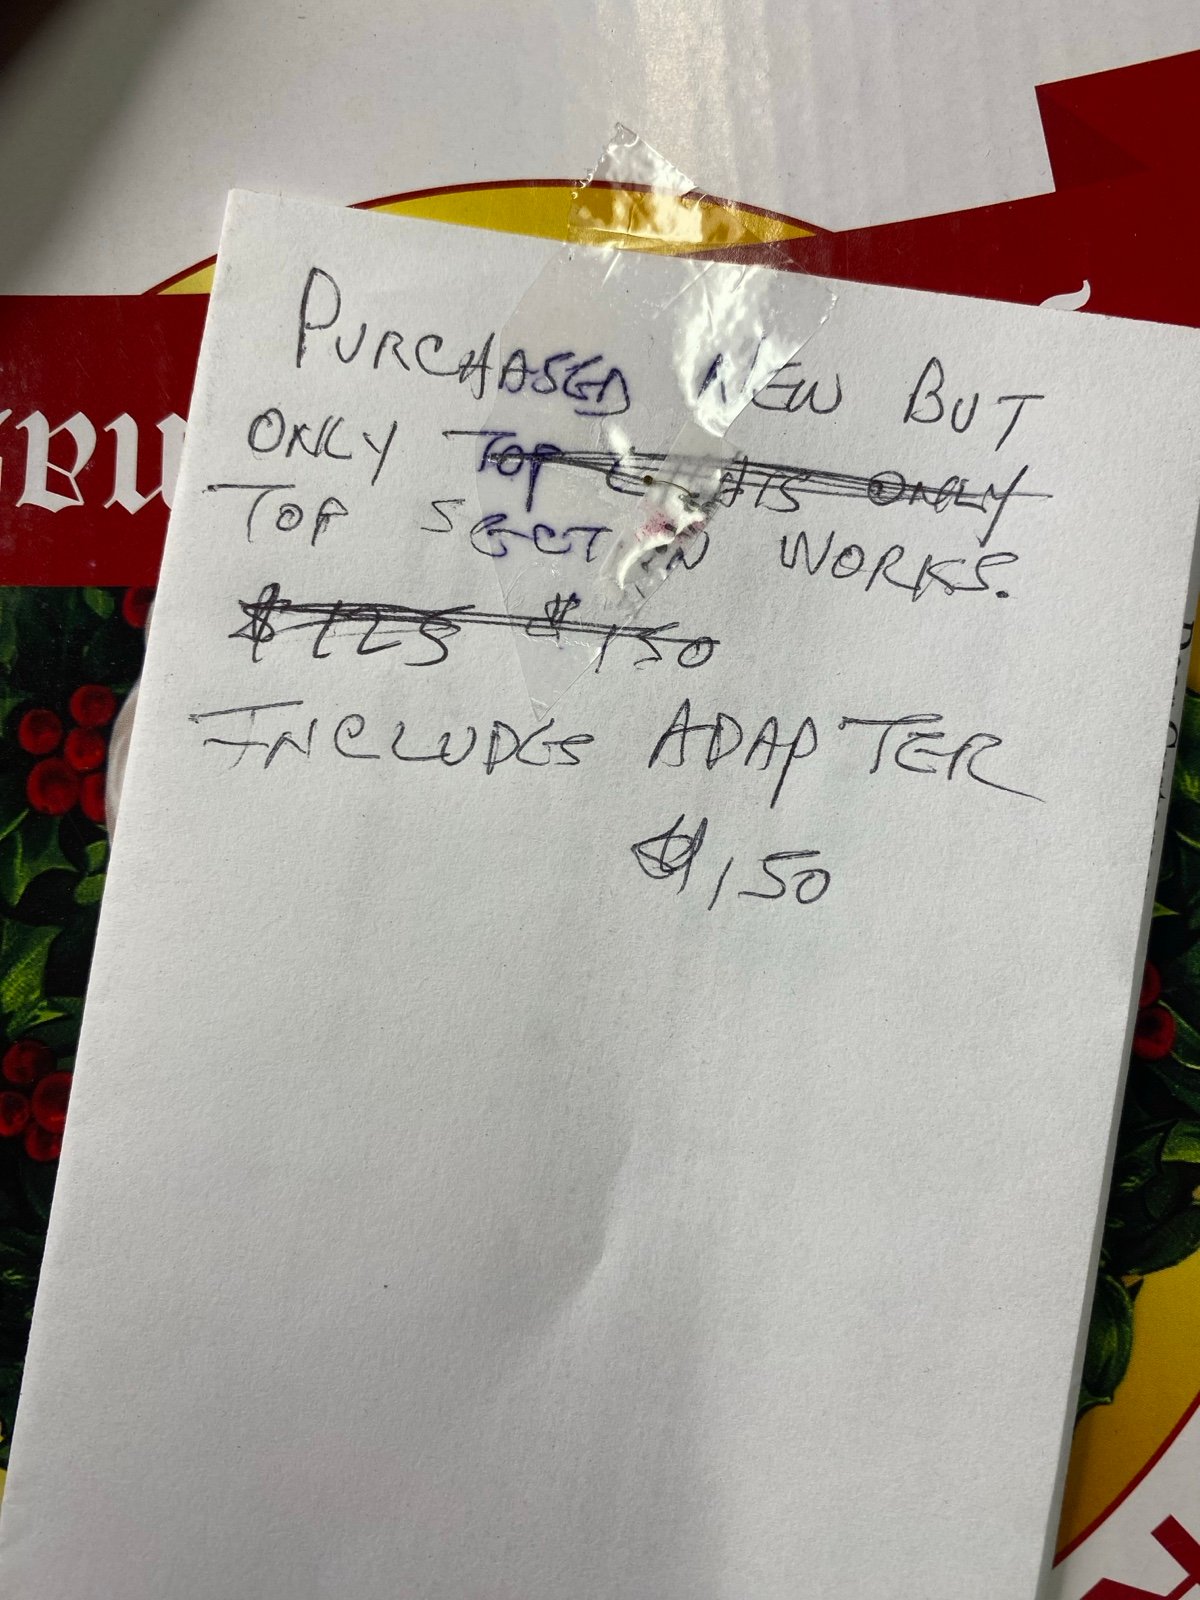 PURCHASED NEW BUT
ONLY TOP ONLY
TOP SECTION WORKS.
$125 $150
INCLUDES ADAPTER
$150